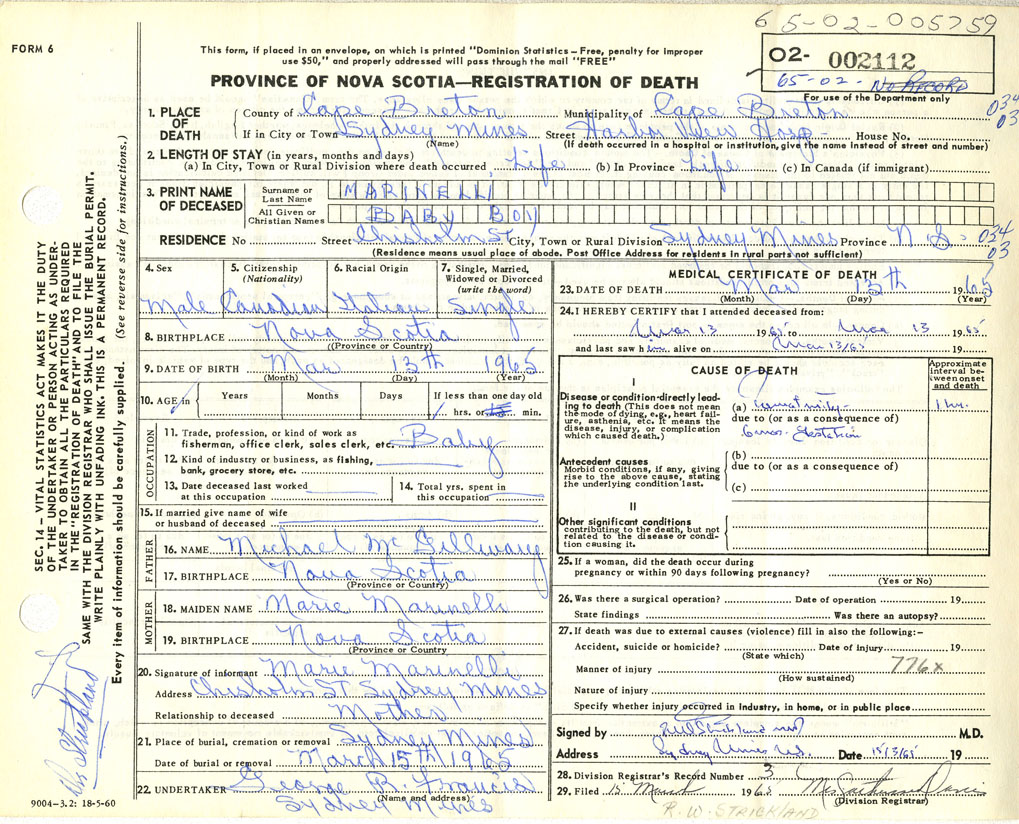 65-02-005759
FORM 6
This form, if placed in an envelope, on which is printed "Dominion Statistics – Free, penalty for improper
use $50," and properly addressed will pass through the mail "FREE"
02- 002112
65-02- NO RECORD
PROVINCE OF NOVA SCOTIA—REGISTRATION OF DEATH
For use of the Department only
034
03
1. PLACE OF DEATH
County of Cape Breton Municipality of Cape Breton
If in City or Town Sydney Mines Street Harbor View Hosp- House No.
(Name) (If death occurred in a hospital or institution, give the name instead of street and number)
2. LENGTH OF STAY (in years, months and days)
(a) In City, Town or Rural Division where death occurred, Life (b) In Province Life (c) In Canada (if immigrant)
3. PRINT NAME OF DECEASED
Surname or Last Name MARINELLI
All Given or Christian Names BABY BOY
RESIDENCE No Street Chisholm St City, Town or Rural Division Sydney Mines Province N S 034
03
(Residence means usual place of abode. Post Office Address for residents in rural parts not sufficient)
4. Sex 5. Citizenship (Nationality) 6. Racial Origin 7. Single, Married, Widowed or Divorced (write the word)
Male Canadian Italian Single
8. BIRTHPLACE Nova Scotia
(Province or Country)
9. DATE OF BIRTH Mar 13th 1965
(Month) (Day) (Year)
10. AGE in Years Months Days If less than one day old
hrs. or min.
OCCUPATION
11. Trade, profession, or kind of work as
fisherman, office clerk, sales clerk, etc. Baby
12. Kind of industry or business, as fishing,
bank, grocery store, etc.
13. Date deceased last worked
at this occupation
14. Total yrs. spent in
this occupation
15. If married give name of wife
or husband of deceased
FATHER
16. NAME Michael McGillivary
17. BIRTHPLACE Nova Scotia
(Province or Country)
MOTHER
18. MAIDEN NAME Marie Marinelli
19. BIRTHPLACE Nova Scotia
(Province or Country)
20. Signature of informant Marie Marinelli
Address Chisholm ST Sydney Mines
Relationship to deceased Mother
21. Place of burial, cremation or removal Sydney Mines
Date of burial or removal March 15th 1965
22. UNDERTAKER George R. Francis
(Name and address)
Sydney Mines
MEDICAL CERTIFICATE OF DEATH
23. DATE OF DEATH Mar 13th 1965
(Month) (Day) (Year)
24. I HEREBY CERTIFY that I attended deceased from:
Mar 13 1965 to Mar 13 1965
and last saw him alive on Mar 13/65 19
CAUSE OF DEATH
Approximate interval between onset and death
I
Disease or condition directly leading to death (This does not
mean the mode of dying, e.g., heart failure,
asthenia, etc. It means the
disease, injury, or complication
which caused death.)
(a) Prematurity 1 hr.
due to (or as a consequence of)
6 mos. gestation
Antecedent causes
Morbid conditions, if any, giving
rise to the above cause, stating
the underlying condition last.
(b)
due to (or as a consequence of)
(c)
II
Other significant conditions
contributing to the death, but not
related to the disease or condition
causing it.
25. If a woman, did the death occur during
pregnancy or within 90 days following pregnancy?
(Yes or No)
26. Was there a surgical operation? Date of operation 19
State findings Was there an autopsy?
27. If death was due to external causes (violence) fill in also the following:–
Accident, suicide or homicide? Date of injury 19
(State which)
Manner of injury 776x
(How sustained)
Nature of injury
Specify whether injury occurred in industry, in home, or in public place
Signed by RW Strickland M.D.
Address Sydney Mines N.S. Date 15/3/65 19
28. Division Registrar's Record Number 3
29. Filed 15 March 1965
(Division Registrar)
R. W. STRICKLAND
SEC. 14 – VITAL STATISTICS ACT MAKES IT THE DUTY
OF THE UNDERTAKER OR PERSON ACTING AS UNDERTAKER
TO OBTAIN ALL THE PARTICULARS REQUIRED
IN THE "REGISTRATION OF DEATH" AND TO FILE THE
SAME WITH THE DIVISION REGISTRAR WHO SHALL ISSUE THE BURIAL PERMIT.
WRITE PLAINLY WITH UNFADING INK. THIS IS A PERMANENT RECORD.
Every item of information should be carefully supplied. (See reverse side for instructions.)
Strickland
9004–3.2: 18-5-60